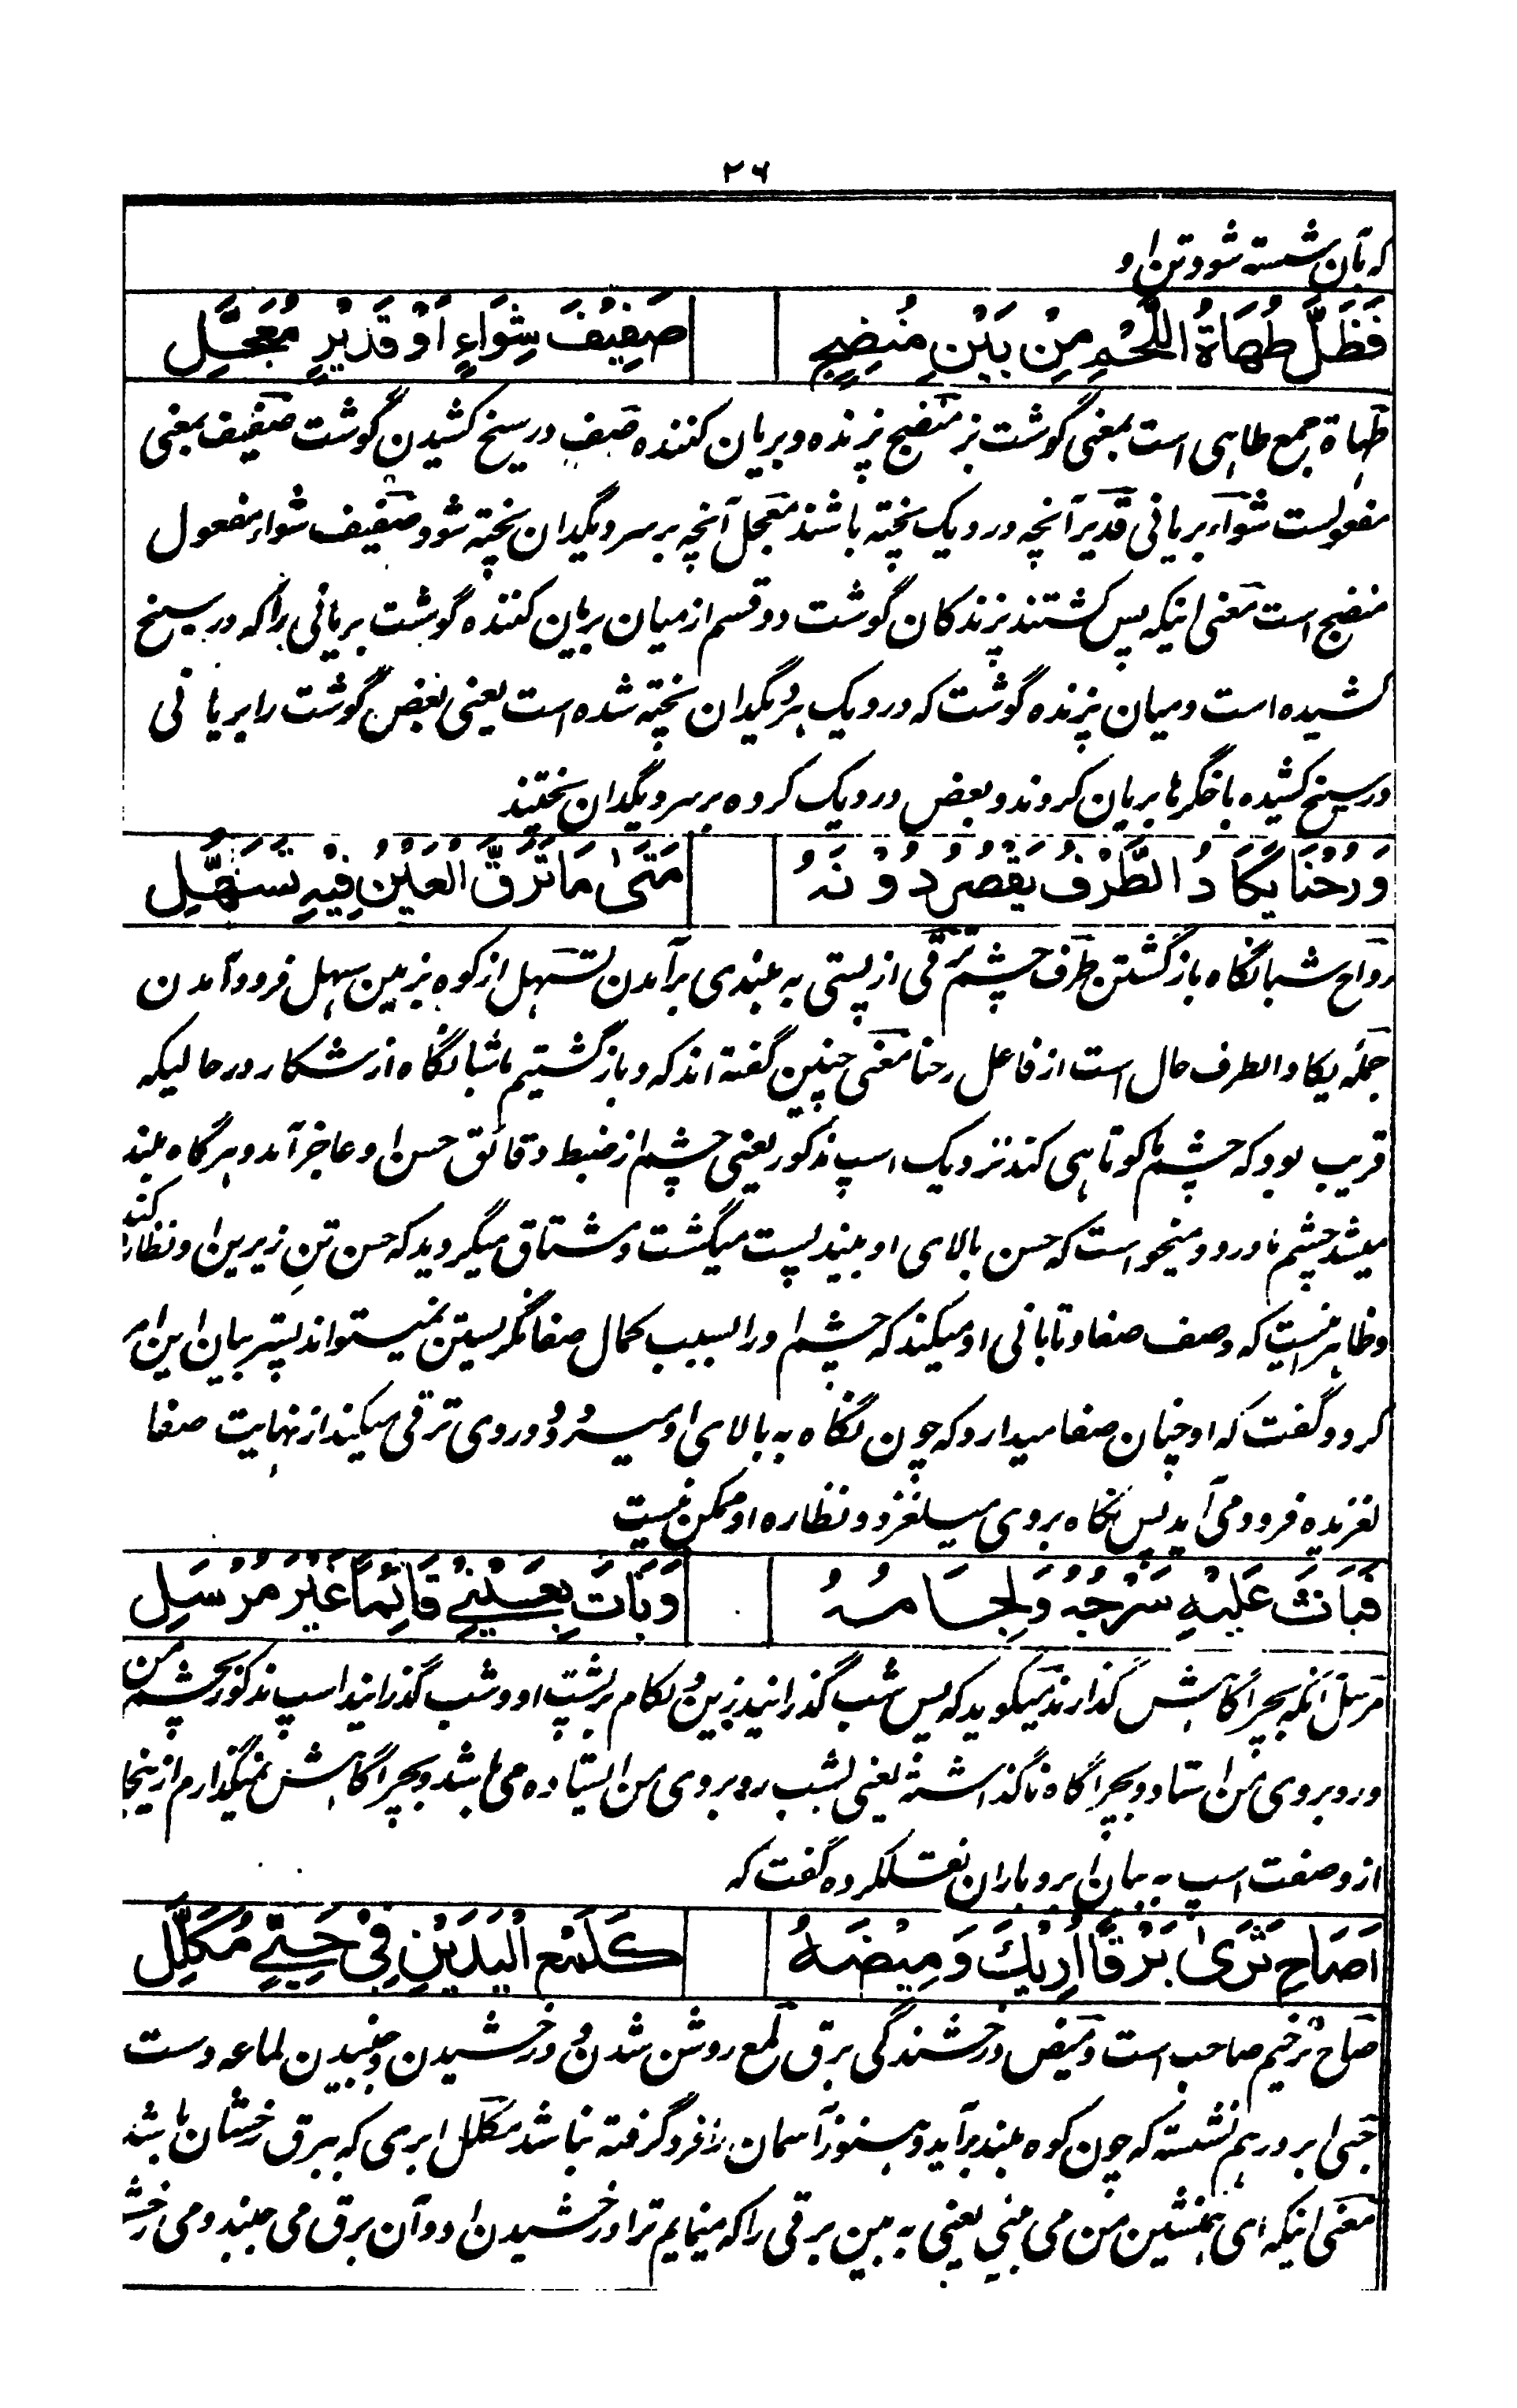 ۲۶
که بآن شسته شود تن او
فَظَلَّ طُهَاةُ اللَّحْمِ مِنْ بَيْنِ مُنْضِجٍ صَفِيْفَ شِوَاءٍ اَوْ قَدِيْرٍ مُعَجَّلِ
طهاة جمع طاهی است بمعنی گوشت پز منضج پزنده و بریان کننده صف در سیخ کشیدن گوشت صفیف بمعنی
مفعولست شواء بریانی قدیر آنچه در دیک پخته باشند معجل آنچه بر سر دیگدان پخته شود صفیف شواء مفعول
منضج است معنی اینکه پس گشتند پزندکان گوشت دو قسم از میان بریان کننده گوشت بریانی را که در سیخ
کشیده است و میان پزنده گوشت که در دیک بر دیگدان پخته شده است یعنی بعض گوشت را بریانی
در سیخ کشیده باخگرها بریان کردند و بعض در دیک کرده بر سر دیگدان پختند
وَرُحْنَا يَكَادُ الطَّرْفُ يَقْصُرُ دُوْنَهُ مَتٰى مَا تَرَقَّ الْعَيْنُ فِيْهِ تَسَهَّلِ
رواح شبانگاه بازگشتن طرف چشم ترقی از پستی به بلندی برآمدن تسهل از کوه بزمین سهل فرود آمدن
جمله یکاد الطرف حال است از فاعل رحنا معنی چنین گفته اند که و بازگشتیم ما شبانگاه از شکار در حالیکه
قریب بود که چشم ما کوتاهی کند نزدیک اسپ مذکور یعنی چشم از ضبط دقائق حسن او عاجز آمد و هرگاه بلند
میشد چشم ما در و میخواست که حسن بالای او بیند پست میگشت و مشتاق میگردید که حسن تن زیرین او نظاره کند
و ظاهر نیست که وصف صفا و تابانی او میکند که چشم او را بسبب کمال صفا نگریستن نمیتواند پستر بیان این امر
کرد و گفت که او چنان صفا میدارد که چون نگاه به بالای او میرود و در وی ترقی میکند از نهایت صفا
لغزیده فرود می آید پس نگاه بروی میلغزد و نظاره او ممکن نیست
فَبَاتَ عَلَيْهِ سَرْجُهُ وَلِجَامُهُ وَبَاتَ بِعَيْنِيْ قَائِمًا غَيْرَ مُرْسَلِ
مرسل آنکه بچراگاهش گذارند میگوید که پس شب گذرانید زین و لگام بر پشت او و شب گذرانید اسپ مذکور بچشم من
و روبروی من استاد و بچراگاه ناگذاشته یعنی بشب روبروی من ایستاده می باشد و بچراگاهش نمیگذارم ازینجا
از وصفت اسپ به بیان ابر و باران نقل کرده گفت که
اَصَاحِ تَرٰى بَرْقًا اُرِيْكَ وَمِيْضَهُ كَلَمْعِ الْيَدَيْنِ فِيْ حَبِيٍّ مُكَلَّلِ
صاح ترخیم صاحب است ومیض درخشندگی برق لمع روشن شدن و درخشیدن و جنبیدن لماعه دست
حبی ابر در هم نشسته که چون کوه بلند برآید و هنوز آسمان را فرو گرفته نباشد مکلل ابری که ببرق رخشان باشد
معنی اینکه ای همنشین من می بینی یعنی به بین برقی را که مینمایم ترا درخشیدن او و آن برق می جنبد و می رخشد